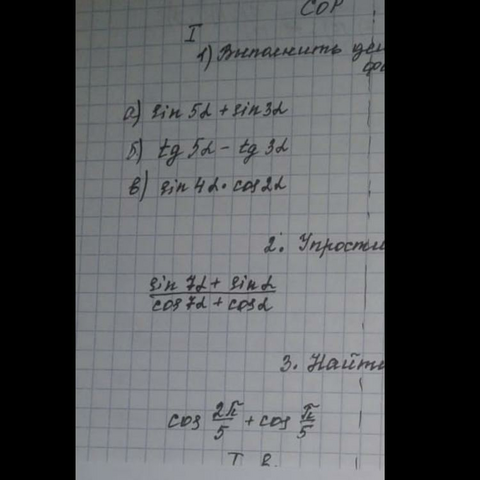 СОР
I
1) Выполнить
а) sin 5α + sin 3α
б) tg 5α - tg 3α
в) sin 4α · cos 2α
2.
sin 7α + sin α
cos 7α + cos α
3.
cos 2π/5 + cos π/5